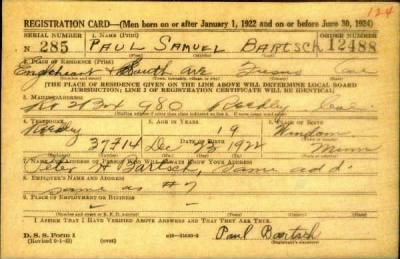 124
REGISTRATION CARD—(Men born on or after January 1, 1922 and on or before June 30, 1924)
SERIAL NUMBER 1. NAME (Print) ORDER NUMBER
N 285 PAUL SAMUEL BARTSCH 12488
2. PLACE OF RESIDENCE (Print)
& South Ave Fresno Cal
[THE PLACE OF RESIDENCE GIVEN ON THE LINE ABOVE WILL DETERMINE LOCAL BOARD
JURISDICTION; LINE 2 OF REGISTRATION CERTIFICATE WILL BE IDENTICAL]
3. MAILING ADDRESS
Rt 2 Box 980 Reedley
4. TELEPHONE 5. AGE IN YEARS 6. PLACE OF BIRTH
Reedley 19 Windom
DATE OF BIRTH
37714 Dec 23 1922 Minn
7. NAME AND ADDRESS OF PERSON WHO WILL ALWAYS KNOW YOUR ADDRESS
Peter H Bartsch, same add
8. EMPLOYER'S NAME AND ADDRESS
same as #7
9. PLACE OF EMPLOYMENT OR BUSINESS
I AFFIRM THAT I HAVE VERIFIED ABOVE ANSWERS AND THAT THEY ARE TRUE.
D. S. S. Form 1
Paul Bartsch